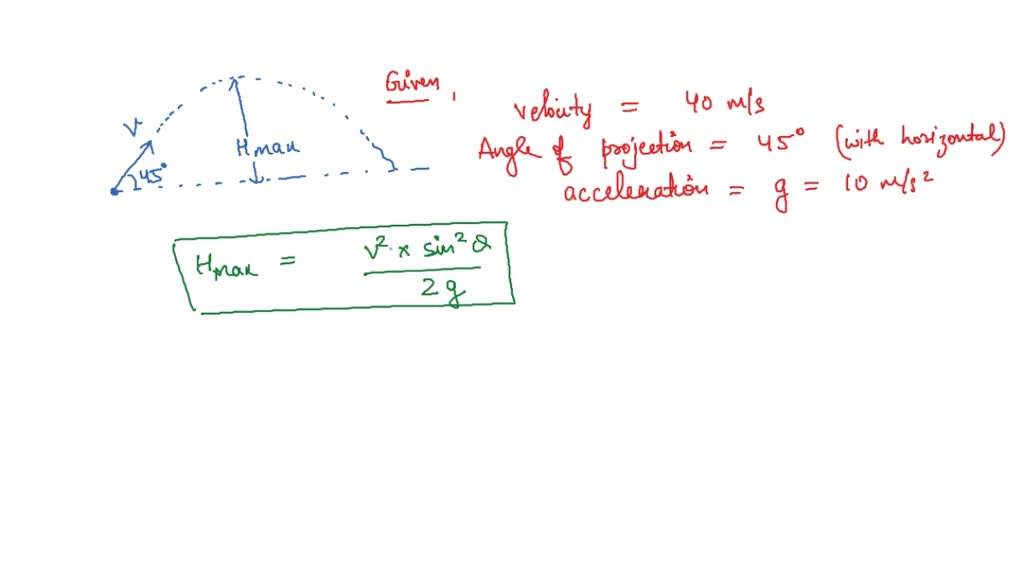 Given,
velocity = 40 m/s
Angle of projection = 45° (with horizontal)
acceleration = g = 10 m/s²
V
45°
Hmax
Hmax = v² × sin²θ
2g